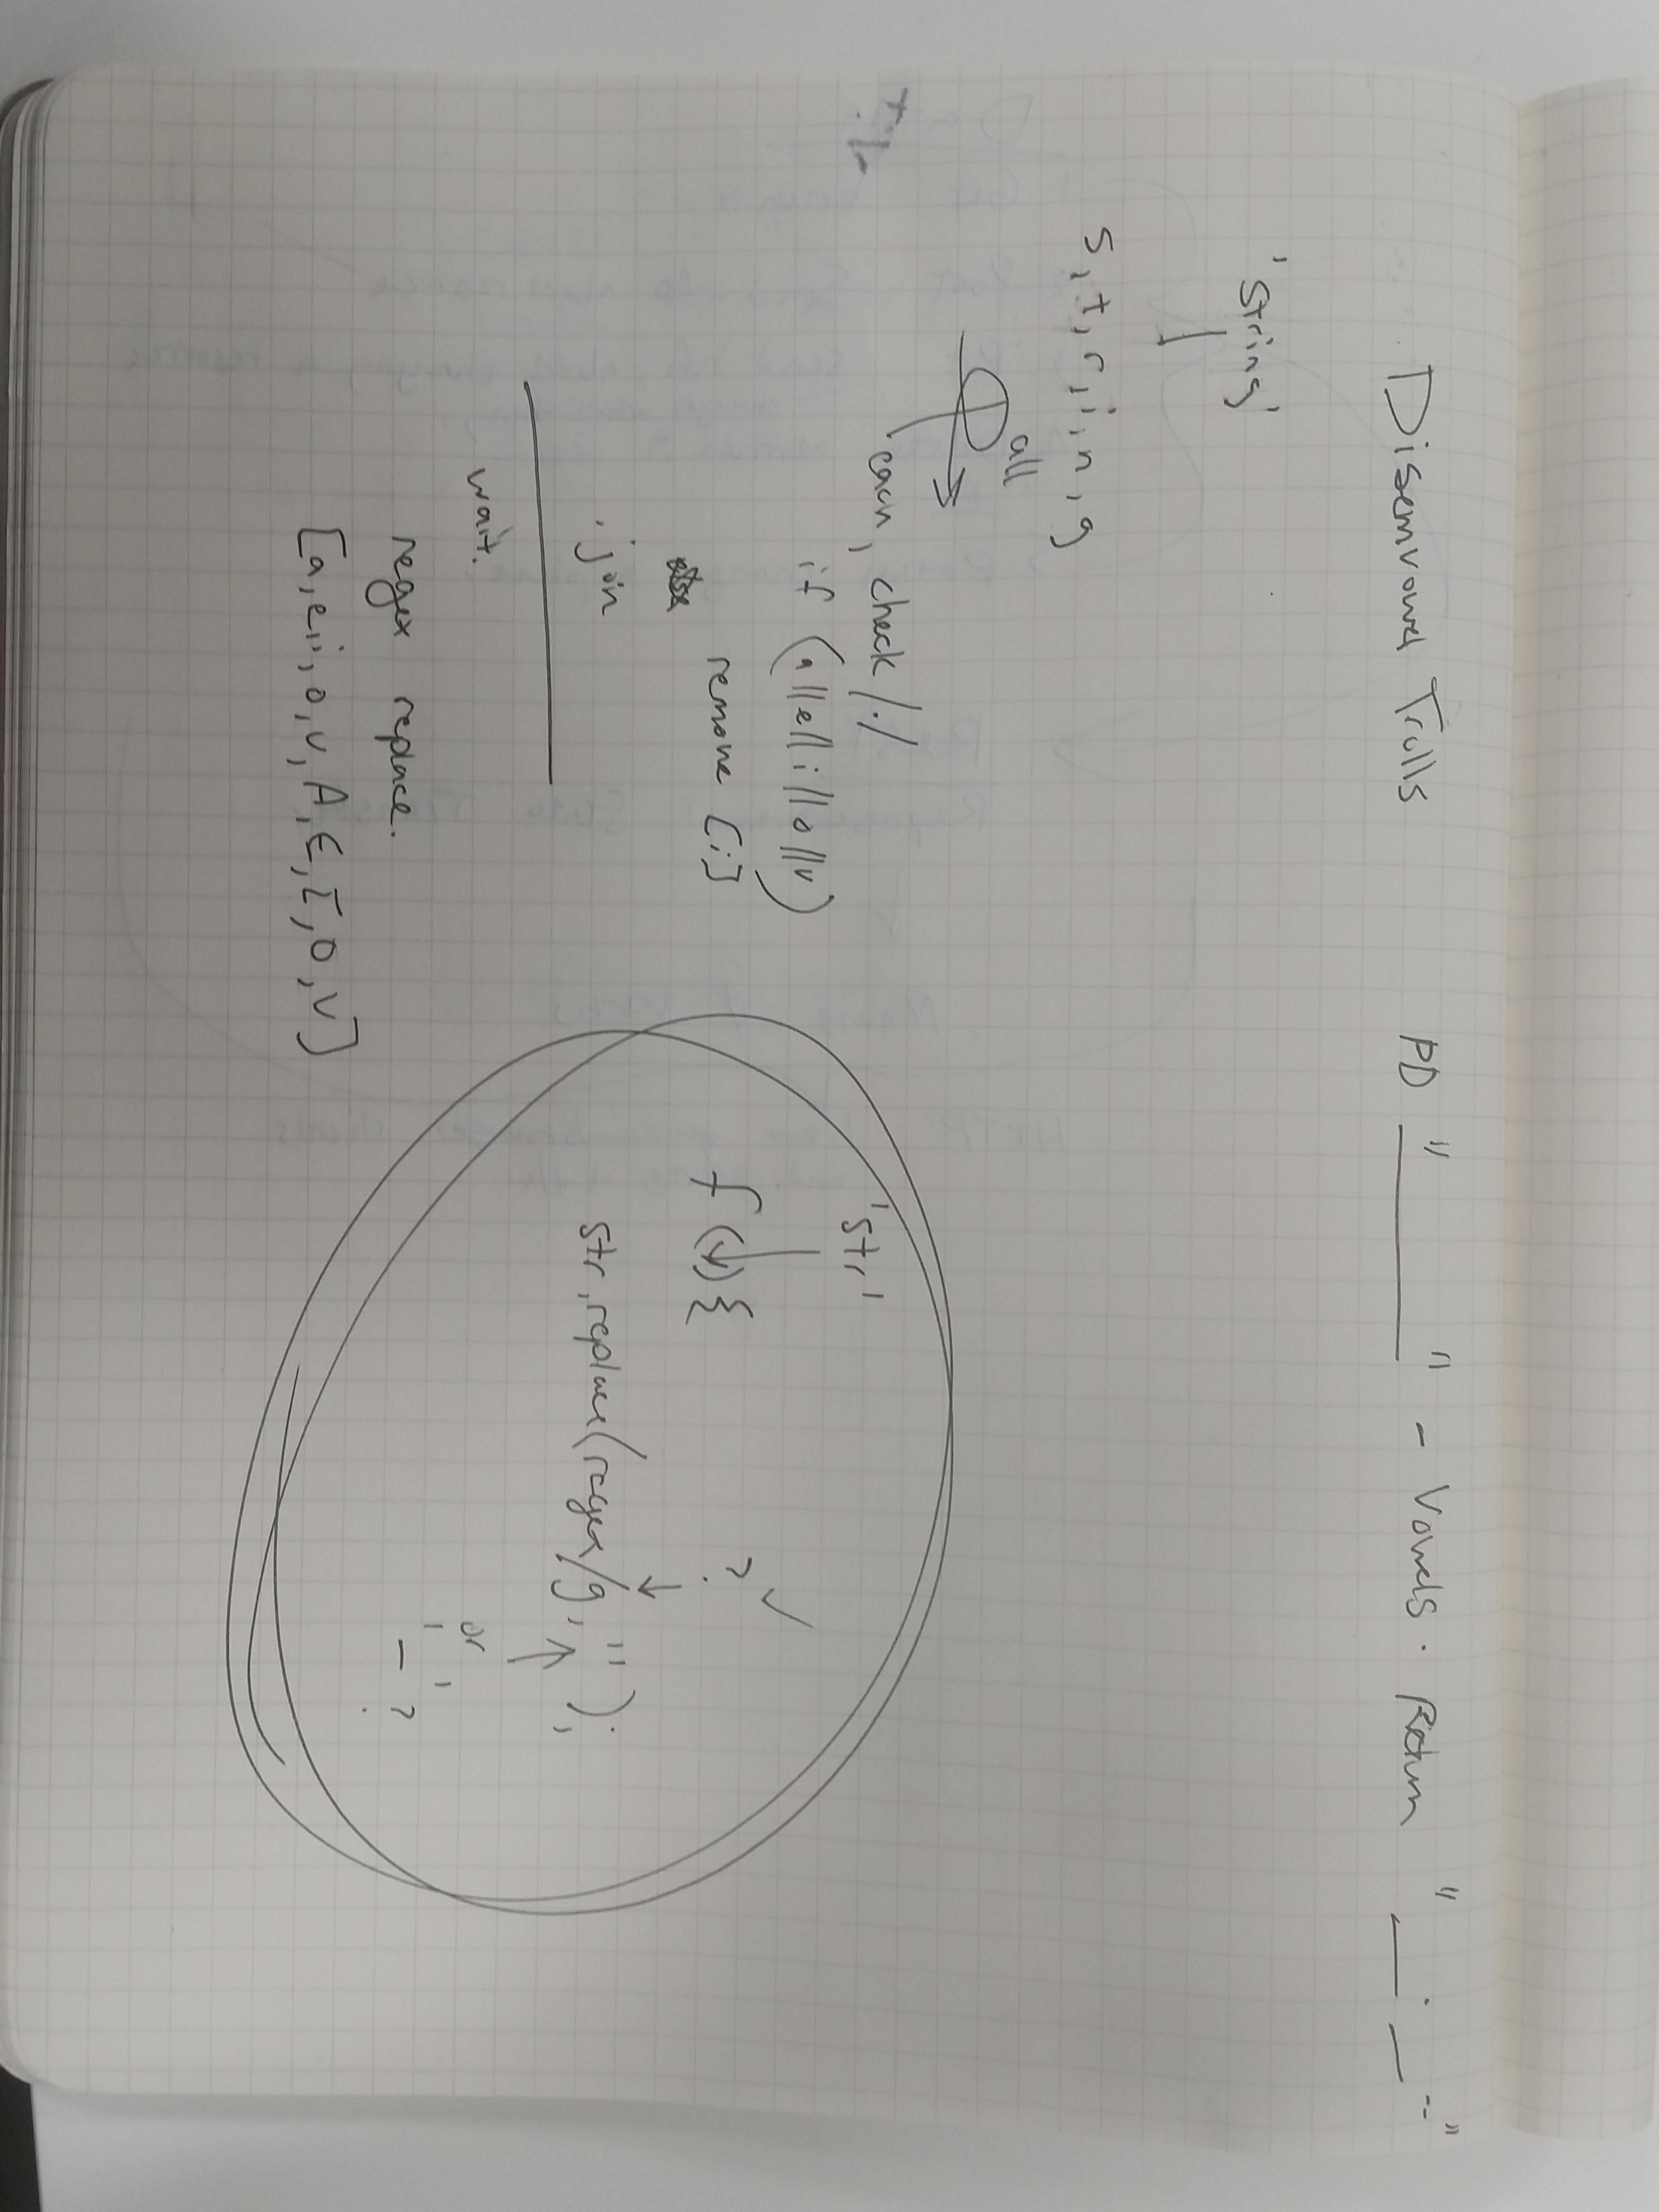 Disemvowel Trolls PD "____" - Vowels. Return "__.__--"
'String'
s,t,r,i,n,g
all
each, check /./
if (a||e||i||o||u)
remove [i]
.join
wait.
regex replace.
[a,e,i,o,u,A,E,I,O,U]
'str'
f( ){
? ✓
str.replace(regex/g, '');
or
' '
_ ?